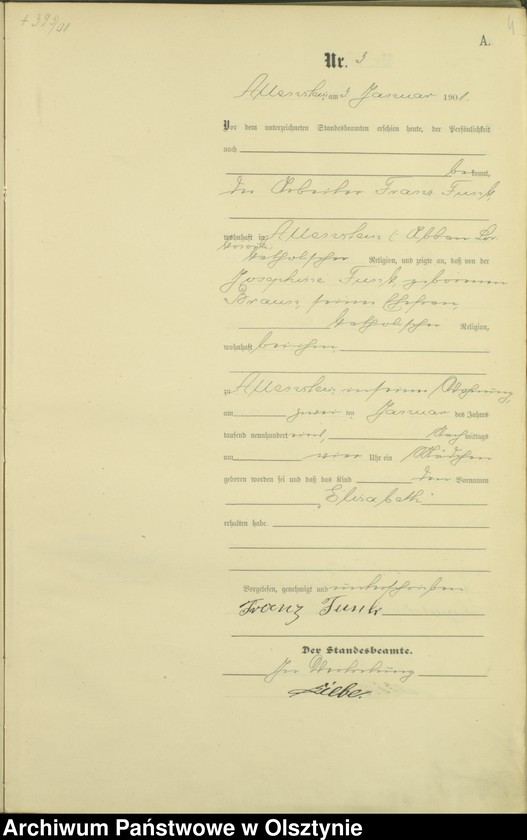 + 393/01
4
A.
Nr. 3
Allenstein am 3 Januar 1901.
Vor dem unterzeichneten Standesbeamten erschien heute, der Persönlichkeit
nach
bekannt,
der Arbeiter Franz Funk,
wohnhaft in Allenstein
katholischer Religion, und zeigte an, daß von der
Josephine Funk, geborenen
Braun, seiner Ehefrau,
katholischer Religion,
wohnhaft bei ihm,
zu Allenstein, in seiner Wohnung,
am zwei ten Januar des Jahres
tausend neunhundert eins, Nachmittags
um vier Uhr ein Mädchen
geboren worden sei und daß das Kind den Vornamen
„Elisabeth“
erhalten habe.
Vorgelesen, genehmigt und unterschrieben
Franz Funk
Der Standesbeamte.
In Vertretung
Archiwum Państwowe w Olsztynie